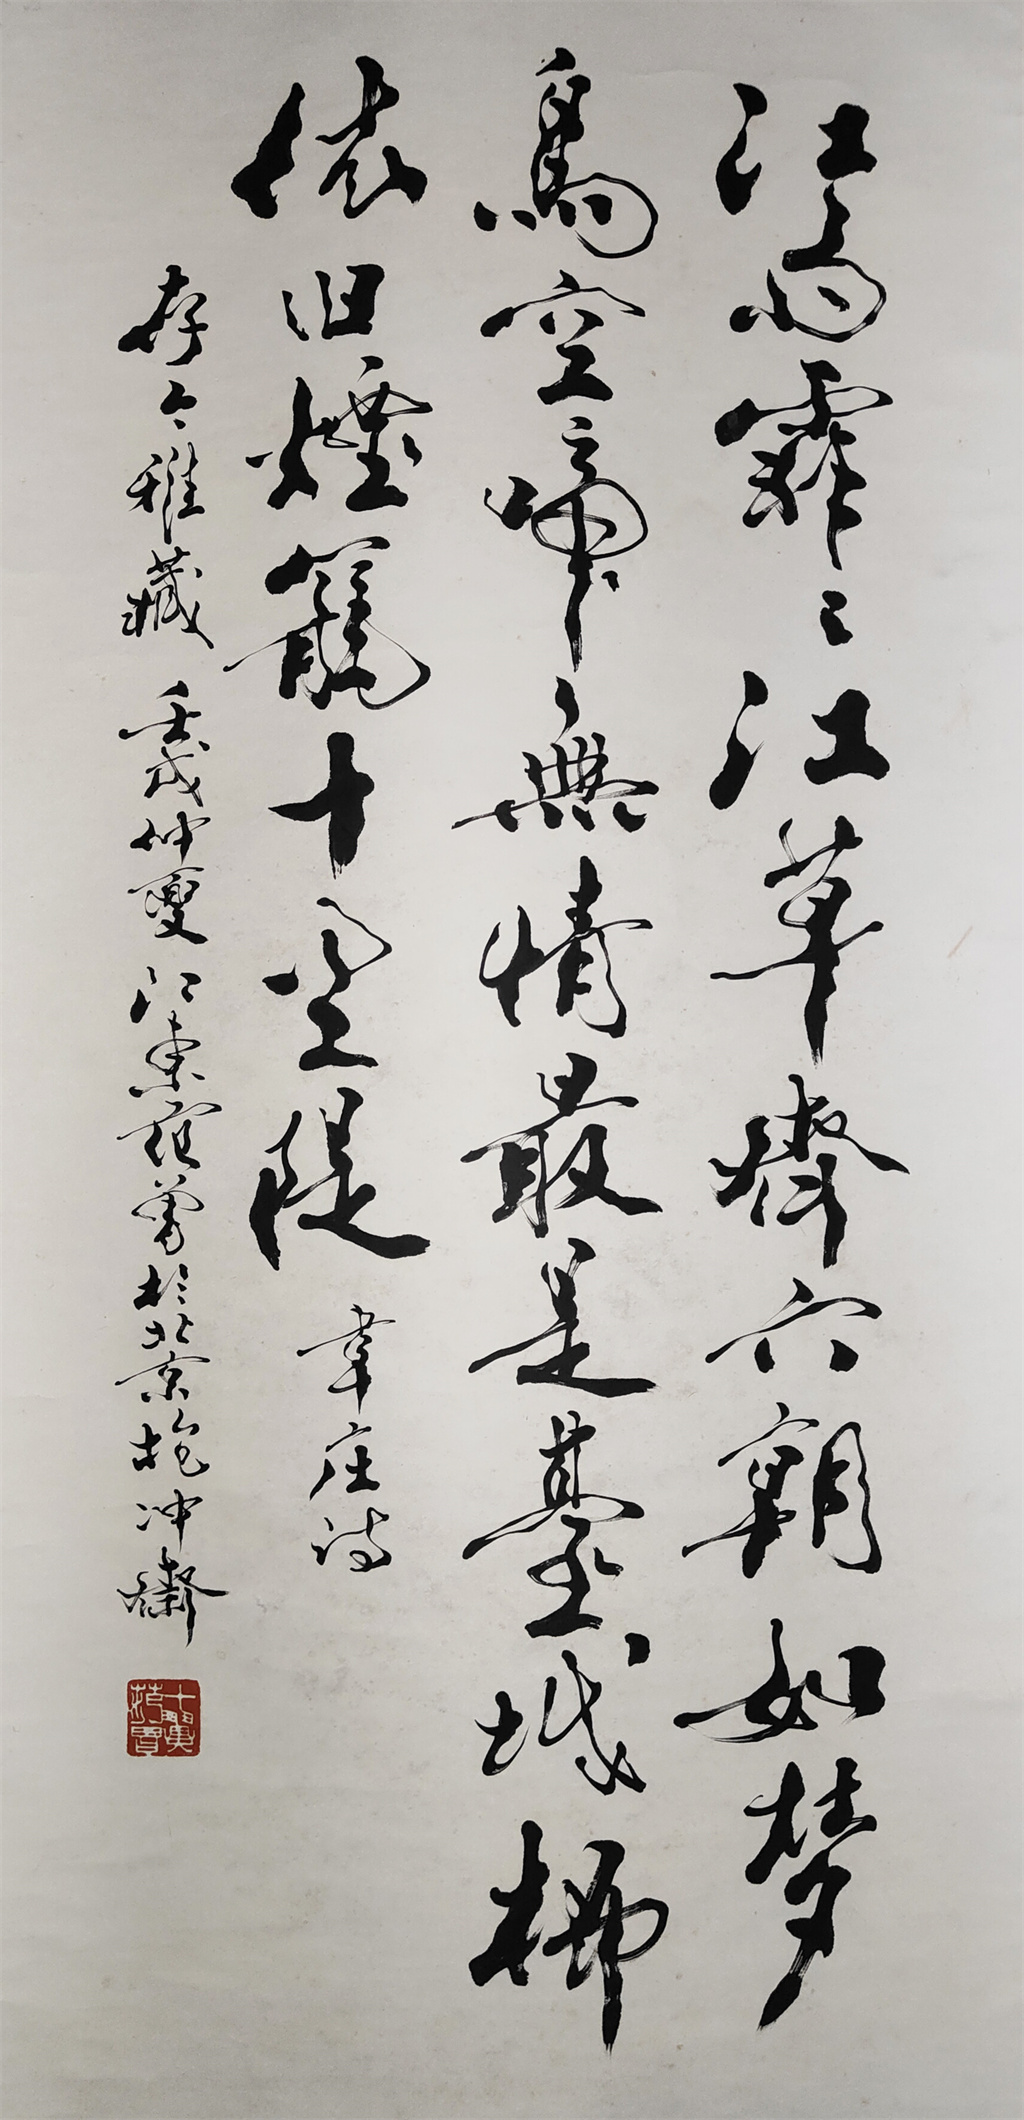 江雨霏〻江草齊六朝如梦
鳥空啼無情最是䑓城柳
依旧煙籠十里堤 韋庄诗
存今雅藏 壬戌仲夏江東范曾於北京抱冲齋
十翼范曾